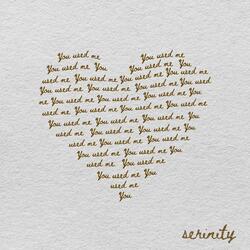 You used me You used me
You used me You used me You
used me You used me You used me You
me You used me You used me You used me
You used me You used me You used me You used
me You used me You used me You used me
You used me You used me You used me
You used me You used me You used
me You used me You used me
You used me You used me
You used me You used
me You used me
You used me You
used me
You
serinity